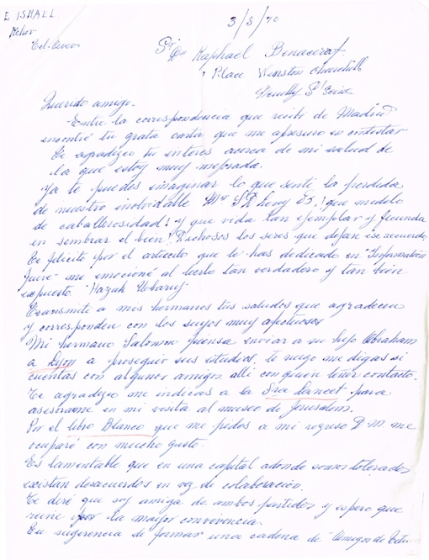 E. ISMALL
3/8/70
Tel-Aviv
Raphael Benazeraf
Place Winston Churchill
Neuilly S/ Seine
Querido amigo.
Entre la correspondencia que recibí de Madrid
encontré tu grata carta que me apresuro en contestar
Te agradezco tu interés acerca de mi salud de
la que estoy muy mejorada.
Ya te puedes imaginar lo que sentí la perdida
de nuestro inolvidable Levy ¡que modelo
de caballerosidad! y que vida tan ejemplar y fecunda
en sembrar el bien! Dichosos los seres que dejan
Te felicito por el articulo que le has dedicado en "Information
Juive" me emocioné al leerlo tan verdadero y tan bien
expuesto. Hazak
Transmití a mis hermanos tus saludos que agradecen
y corresponden con los suyos muy afectuosos
Mi hermano Salomon piensa enviar a su hijo Abraham
a Lyon a proseguir sus estudios, te ruego me digas si
cuentas con algunos amigos allí con quien tener contacto.
Te agradezco me indicas a la Sra para
asesorarme en mi visita al museo de Jerusalem.
Por el libro Blanco que me pides a mi regreso me
ocuparé con mucho gusto.
Es lamentable que en una capital adonde somos tolerados
existan desacuerdos en vez de colaboración.
Te diré que soy amiga de ambos partidos y espero que
reine por la mayor convivencia.
Tu sugerencia de formar una cadena de "Amigos de